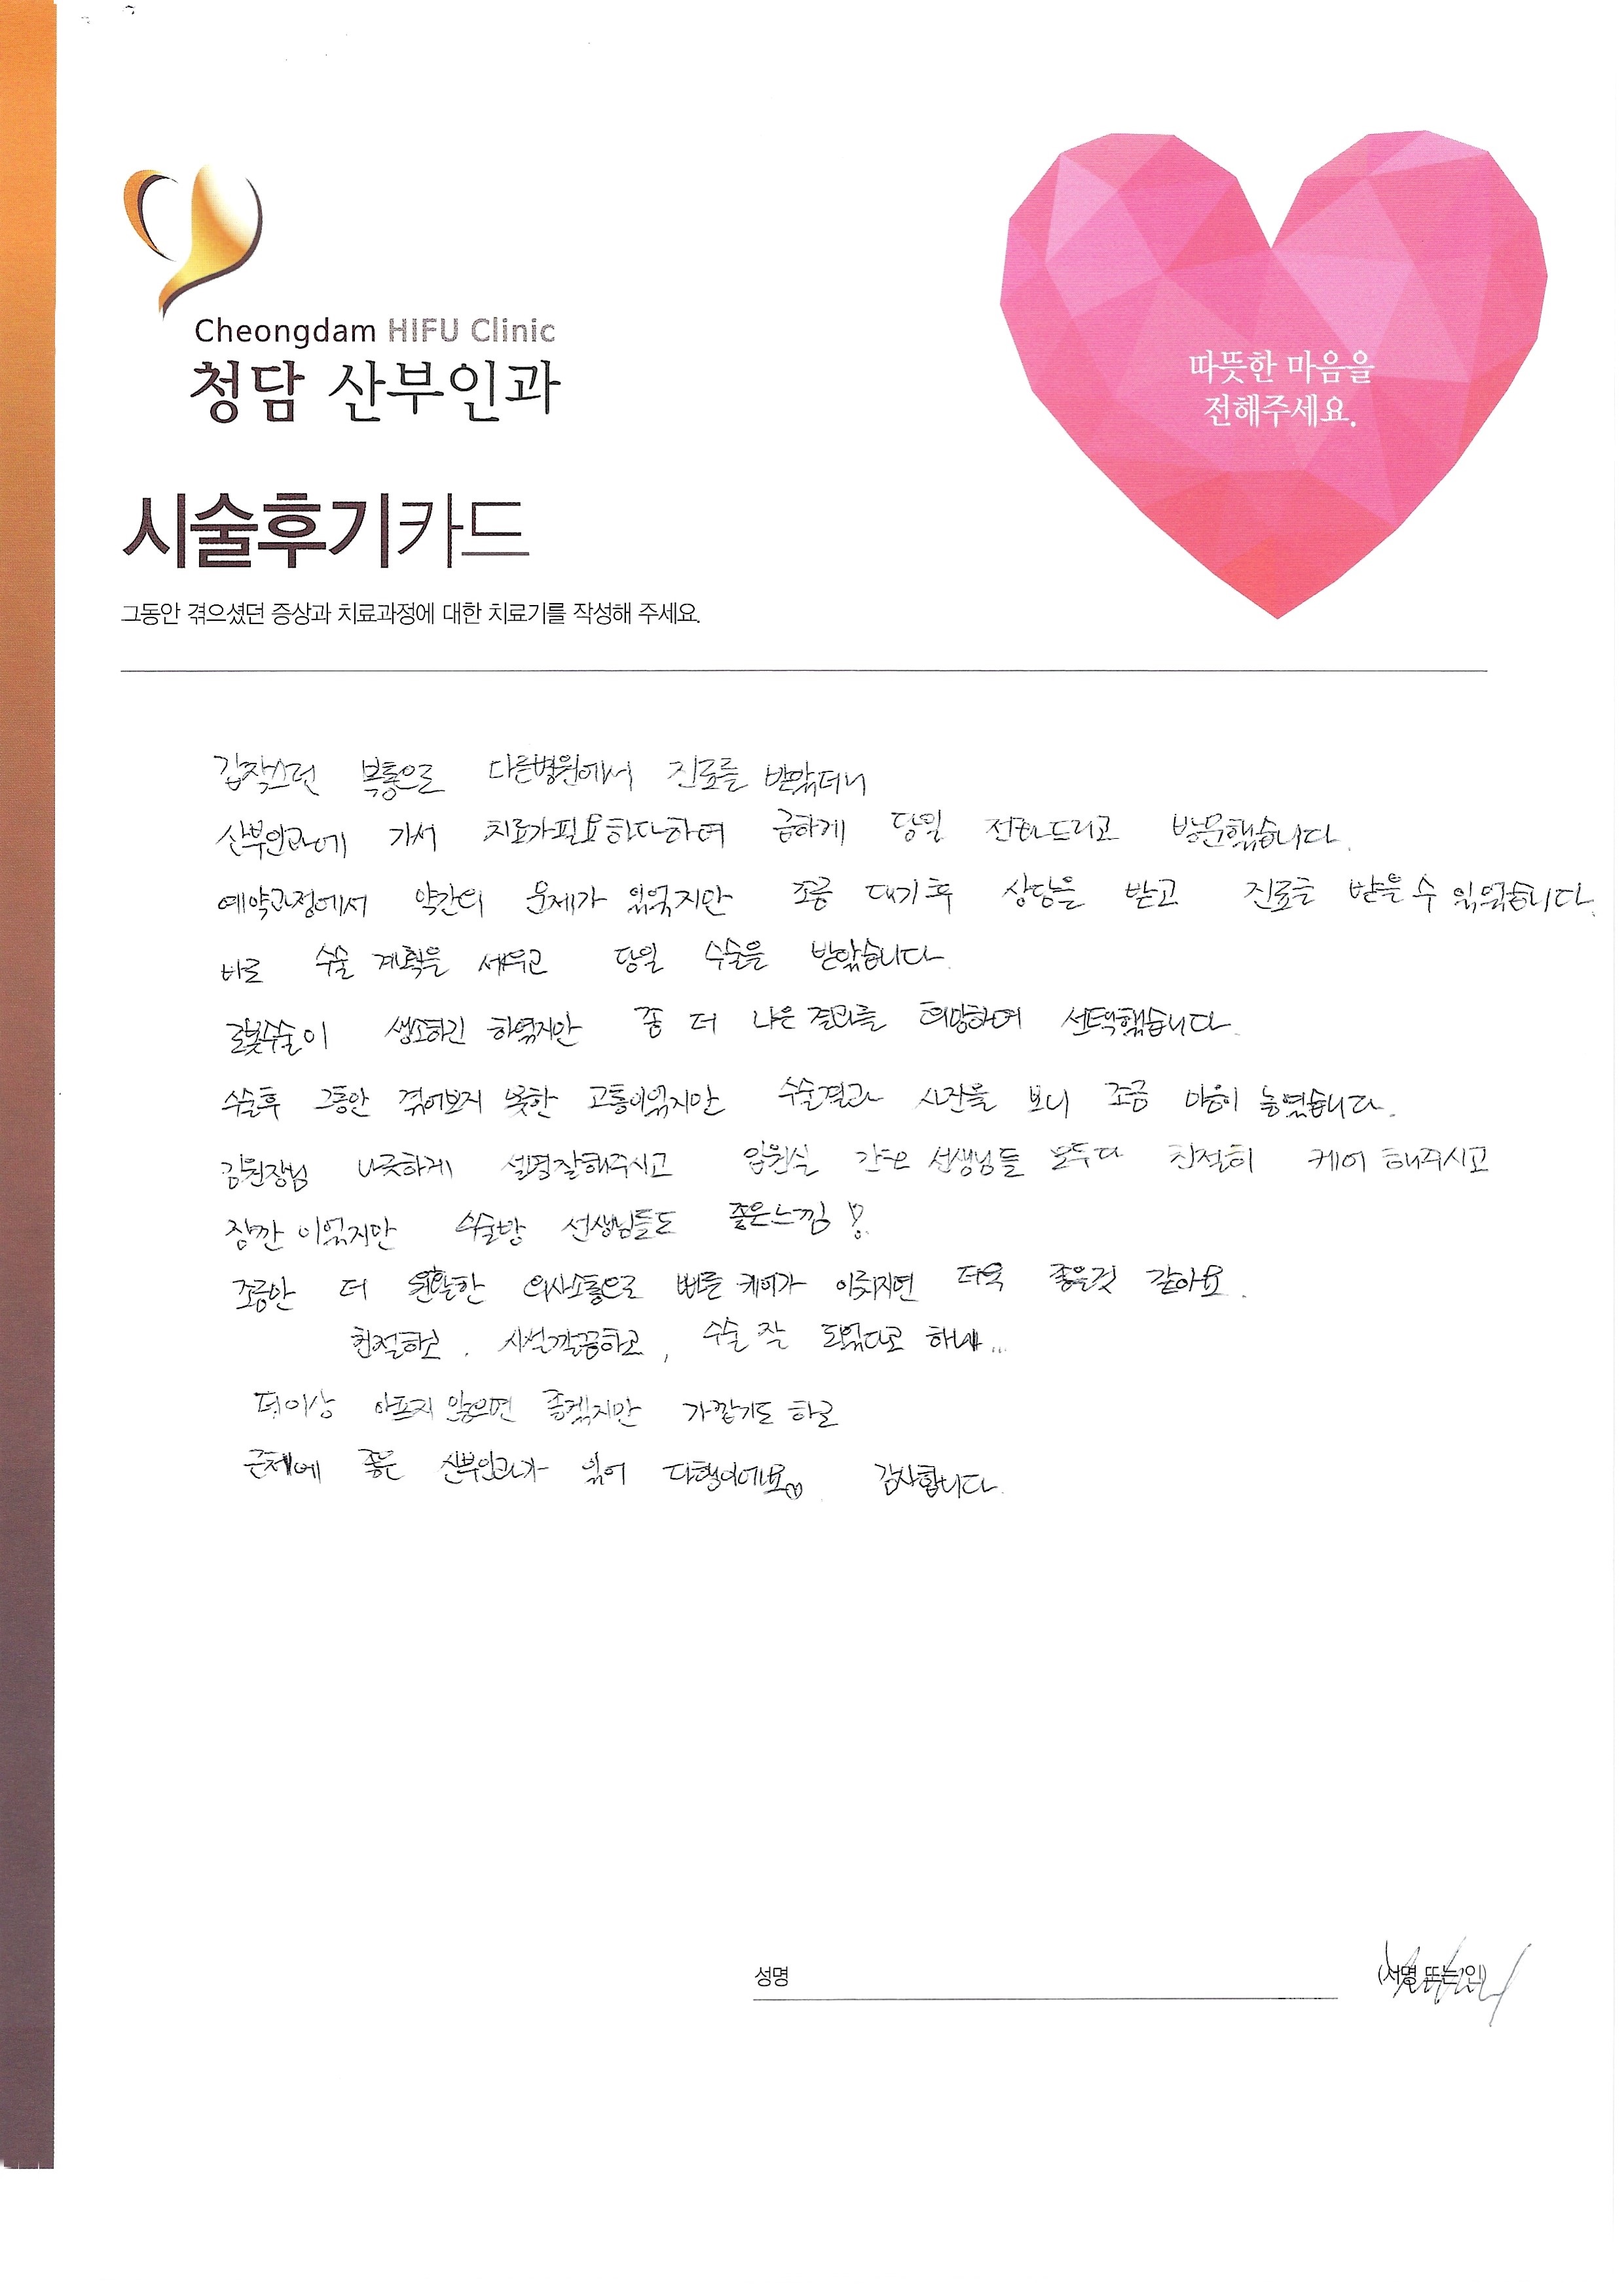 Cheongdam HIFU Clinic
청담 산부인과
따뜻한 마음을
전해주세요.
시술후기카드
그동안 겪으셨던 증상과 치료과정에 대한 치료기를 작성해 주세요.
갑작스런 복통으로 다른병원에서 진료를 받았더니
산부인과에 가서 치료가필요하다하여 급하게 당일 전화드리고 방문했습니다.
예약과정에서 약간의 문제가 있었지만 조금 대기 후 상담을 받고 진료를 받을 수 있었습니다.
바로 수술 계획을 세우고 당일 수술을 받았습니다.
로봇수술이 생소하긴 하였지만 좀 더 나은 결과를 희망하여 선택했습니다.
수술후 그동안 겪어보지 못한 고통이었지만 수술결과 사진을 보니 조금 마음이 놓였습니다.
김원장님 나긋하게 설명잘해주시고 입원실 간호 선생님들 모두다 친절히 케어 해주시고
잠깐 이었지만 수술방 선생님들도 좋은느낌!
조금만 더 원활한 의사소통으로 빠른 케어가 이뤄지면 더욱 좋을것 같아요.
친절하고, 시설깔끔하고, 수술 잘 되었다고 하네...
더이상 아프지 않으면 좋겠지만 가깝기도 하고
근처에 좋은 산부인과가 있어 다행이에요♡ 감사합니다.
성명
(서명 또는 인)